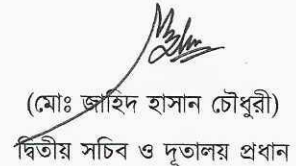 (মোঃ জাহিদ হাসান চৌধুরী)
দ্বিতীয় সচিব ও দূতালয় প্রধান